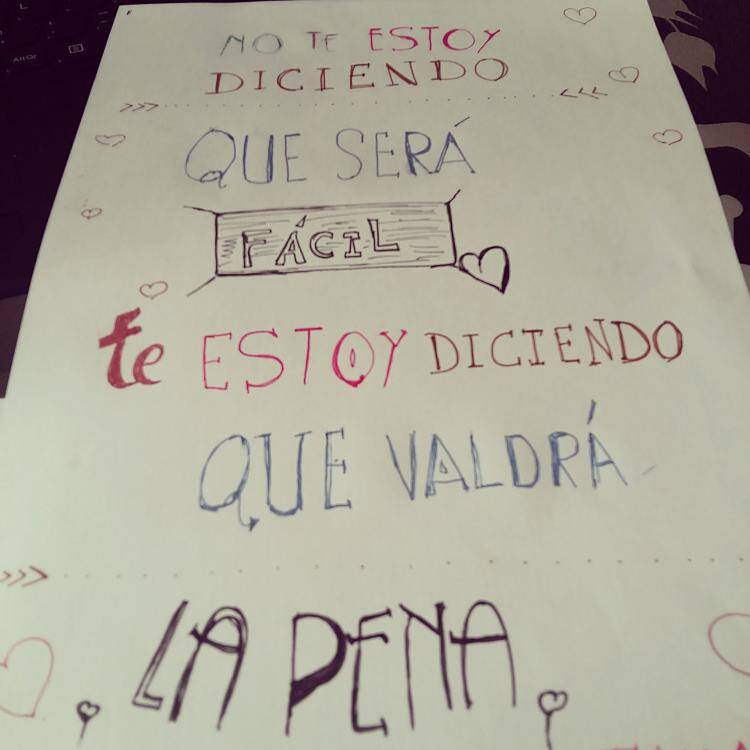 NO TE ESTOY
DICIENDO
QUE SERÁ
FÁCIL
te ESTOY DICIENDO
QUE VALDRÁ
LA PENA